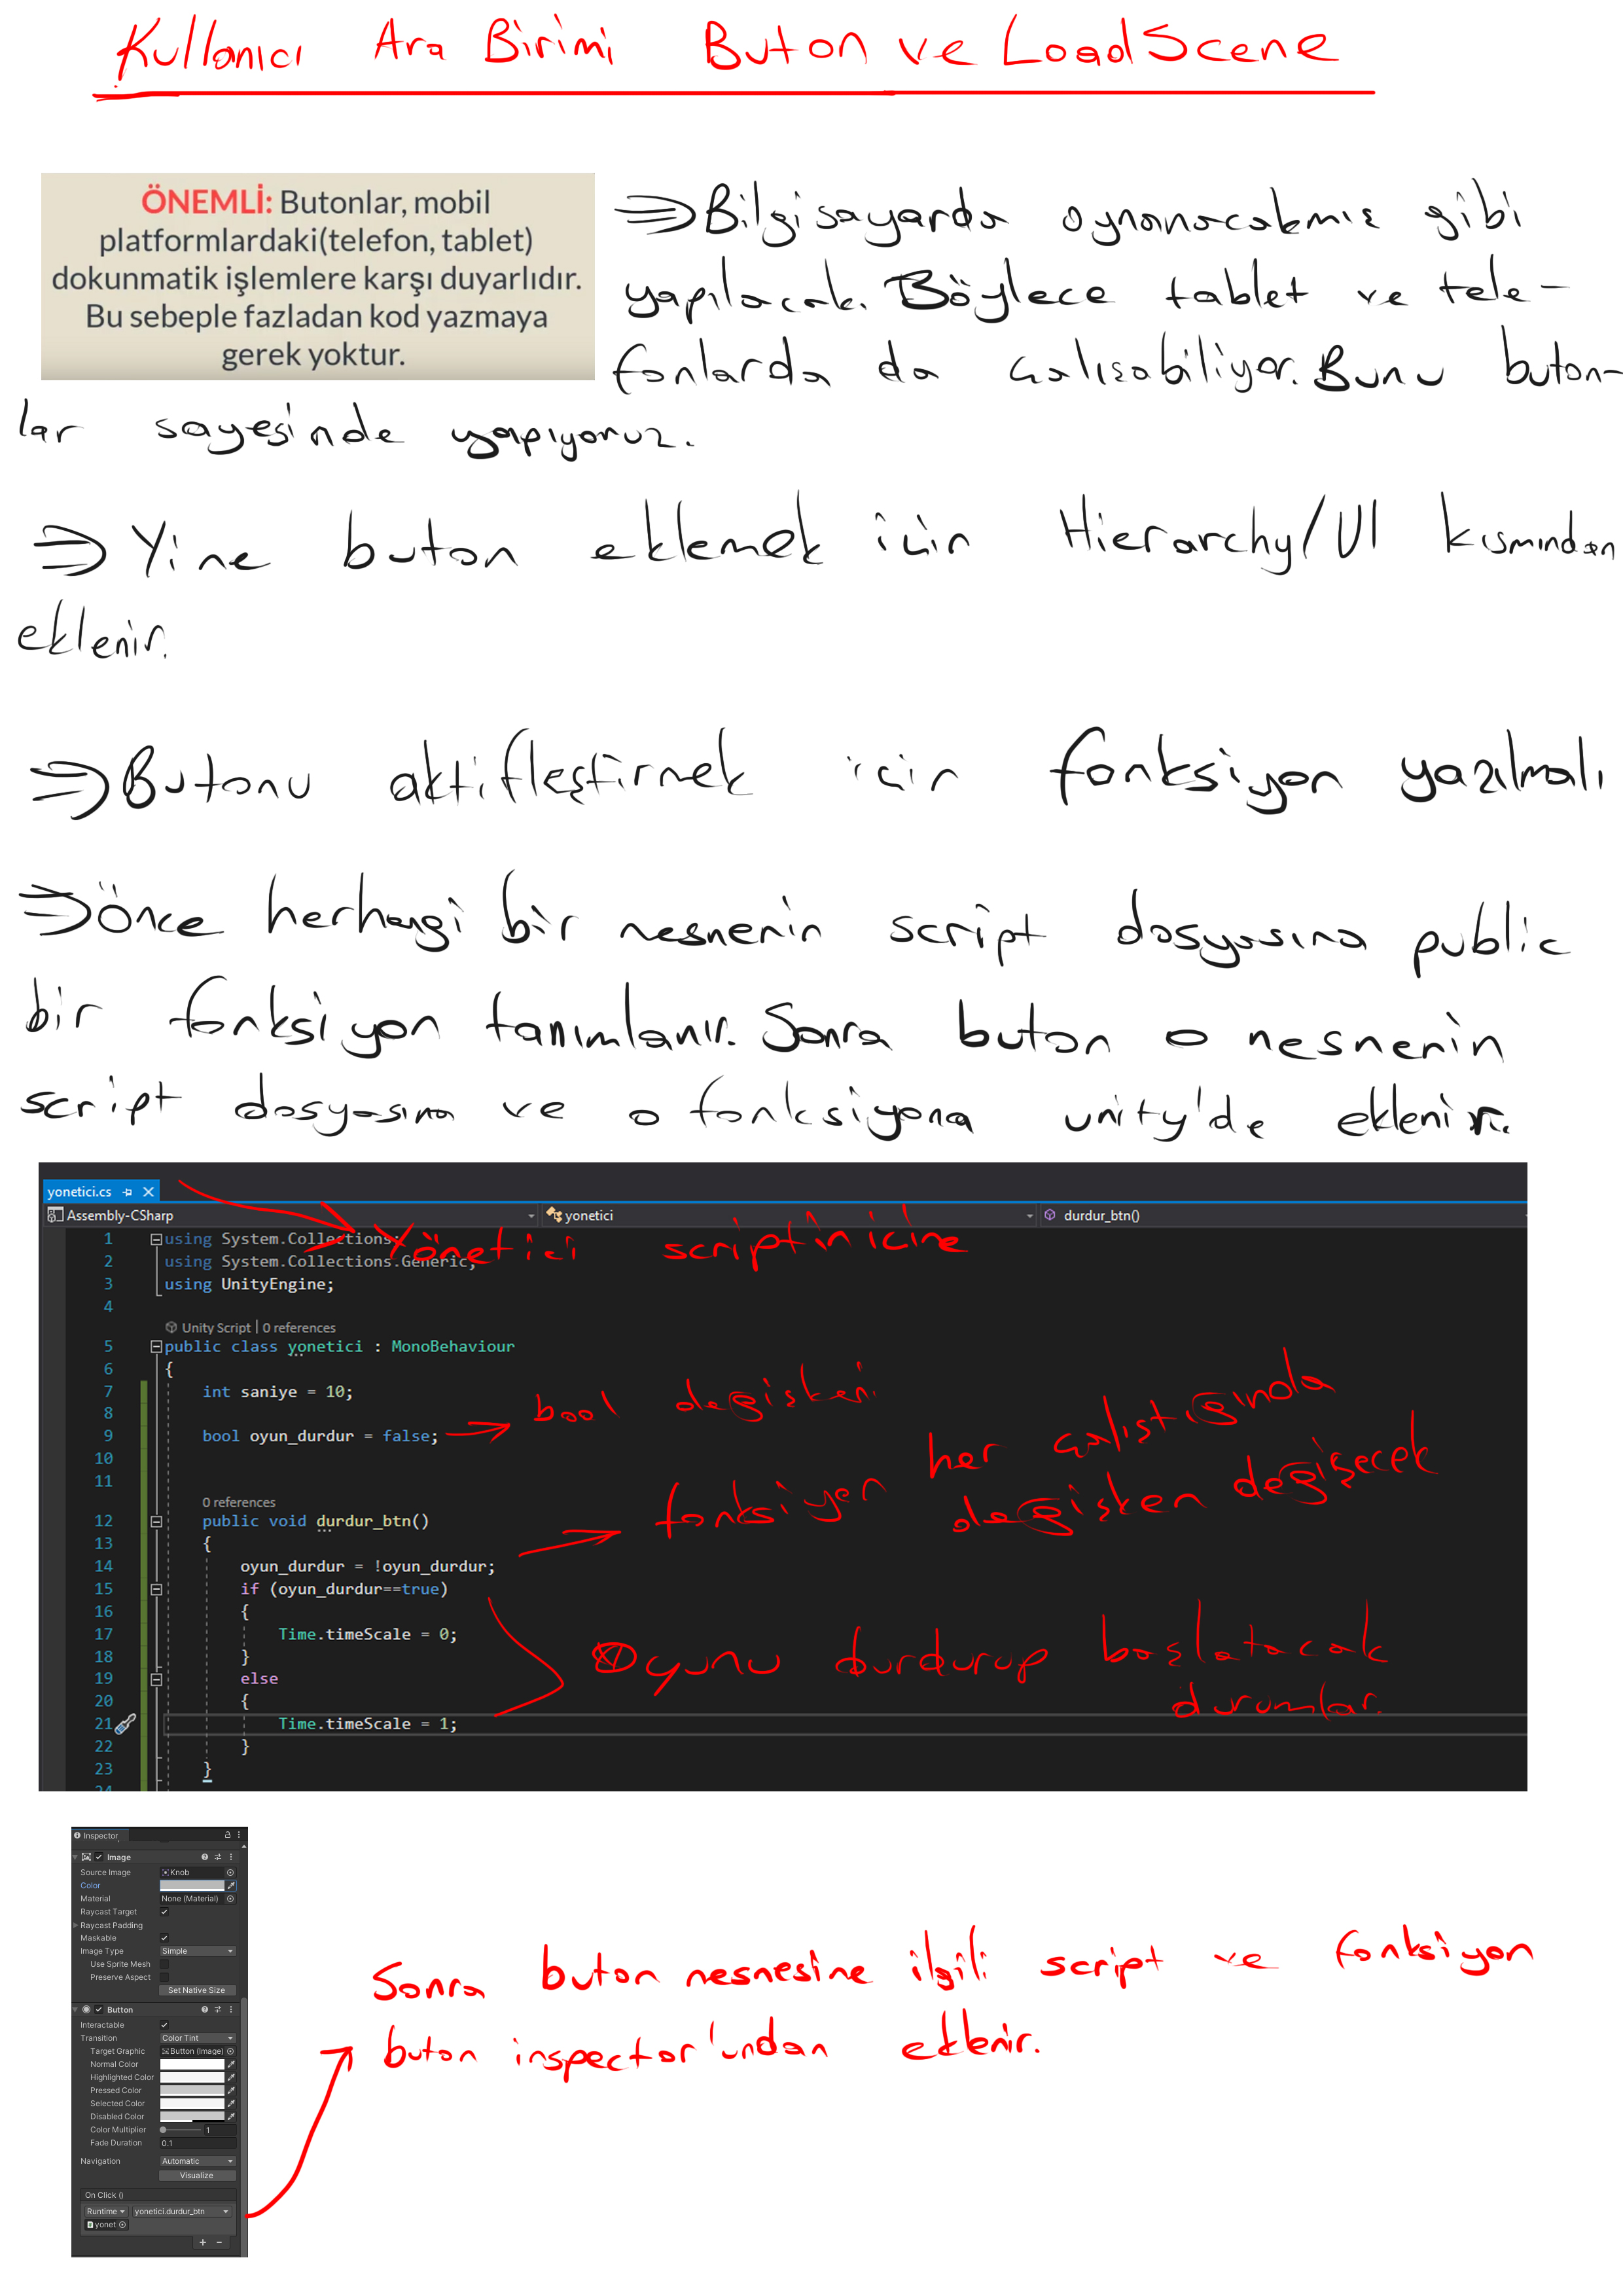 Kullanıcı Ara Birimi Buton ve LoadScene
ÖNEMLİ: Butonlar, mobil
platformlardaki(telefon, tablet)
dokunmatik işlemlere karşı duyarlıdır.
Bu sebeple fazladan kod yazmaya
gerek yoktur.
⇒ Bilgisayarda oynanacakmış gibi
yapılacak. Böylece tablet ve tele-
fonlarda da çalışabiliyor. Bunu buton-
lar sayesinde yapıyoruz.
⇒ Yine buton eklemek için Hierarchy/UI kısmından
eklenir.
⇒ Butonu aktifleştirmek için fonksiyon yazılmalı
⇒ Önce herhangi bir nesnenin script dosyasına public
bir fonksiyon tanımlanır. Sonra buton o nesnenin
script dosyasına ve o fonksiyona unity'de eklenir.
yonetici.cs
Assembly-CSharp yonetici durdur_btn()
Yönetici scriptin içine
1 using System.Collections;
2 using System.Collections.Generic;
3 using UnityEngine;
4
Unity Script | 0 references
5 public class yonetici : MonoBehaviour
6 {
7 int saniye = 10;
8
9 bool oyun_durdur = false;
bool değişkeni
10
11
0 references
12 public void durdur_btn()
fonksiyon her çalıştığında
değişken değişecek
13 {
14 oyun_durdur = !oyun_durdur;
15 if (oyun_durdur==true)
16 {
17 Time.timeScale = 0;
18 }
19 else
20 {
21 Time.timeScale = 1;
22 }
23 }
24
Oyunu durdurup başlatacak
durumlar.
Inspector
Image
Source Image Knob
Color
Material None (Material)
Raycast Target
Raycast Padding
Maskable
Image Type Simple
Use Sprite Mesh
Preserve Aspect
Set Native Size
Button
Interactable
Transition Color Tint
Target Graphic Button (Image)
Normal Color
Highlighted Color
Pressed Color
Selected Color
Disabled Color
Color Multiplier 1
Fade Duration 0.1
Navigation Automatic
Visualize
On Click ()
Runtime yonetici.durdur_btn
yonet
+ −
Sonra buton nesnesine ilgili script ve fonksiyon
buton inspector'undan eklenir.